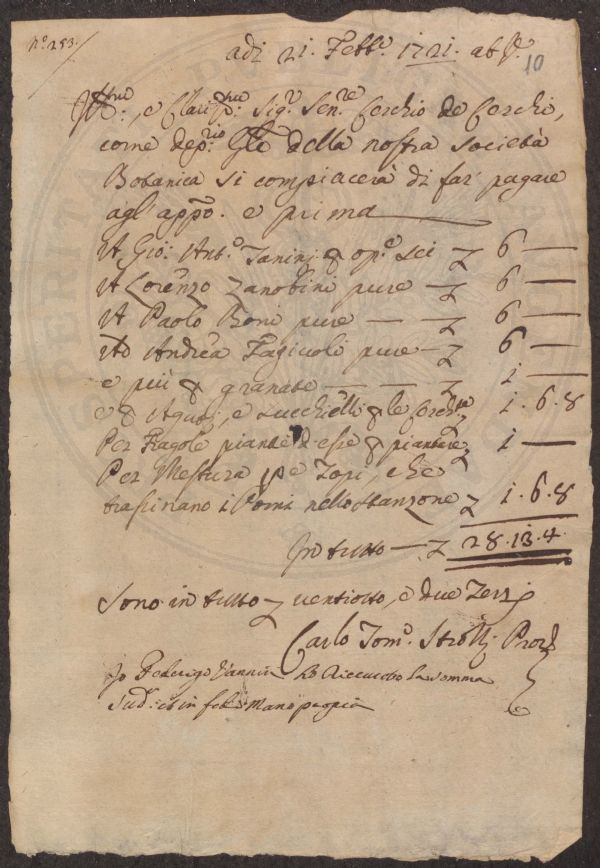 N.º 253.
adi 21. Febb.º 1721. ab I.e
10
Ill.mo, e Clariss.mo Sig.r Sen.re Cerchio de Cerchi,
come dep.rio Gle della nostra società
Botanica si compiacerà di far pagare
agl'app.o e prima
A Gio: Ant.º Tanini p op.e sei — 6 —
A Lorenzo Zanobini pure — 6 —
A Paolo Boni pure — — 6 —
Ad Andrea Fagiuoli pure — 6 —
e più p granate — — — 1 —
e p Aguti, e succhielli p le 1.6.8
Per Fragole piante p piantare 1 —
Per Mestura pe Topi, che
trascinano i Pomi nello stanzone 1.6.8
In tutto — 28.13.4
Sono in tutto ventiotto, e due Terzi
Carlo Tom.º Strozzi Prov.
Io Federigo Vannini ho riceuto la somma
Sud.a et in fede Mano propria